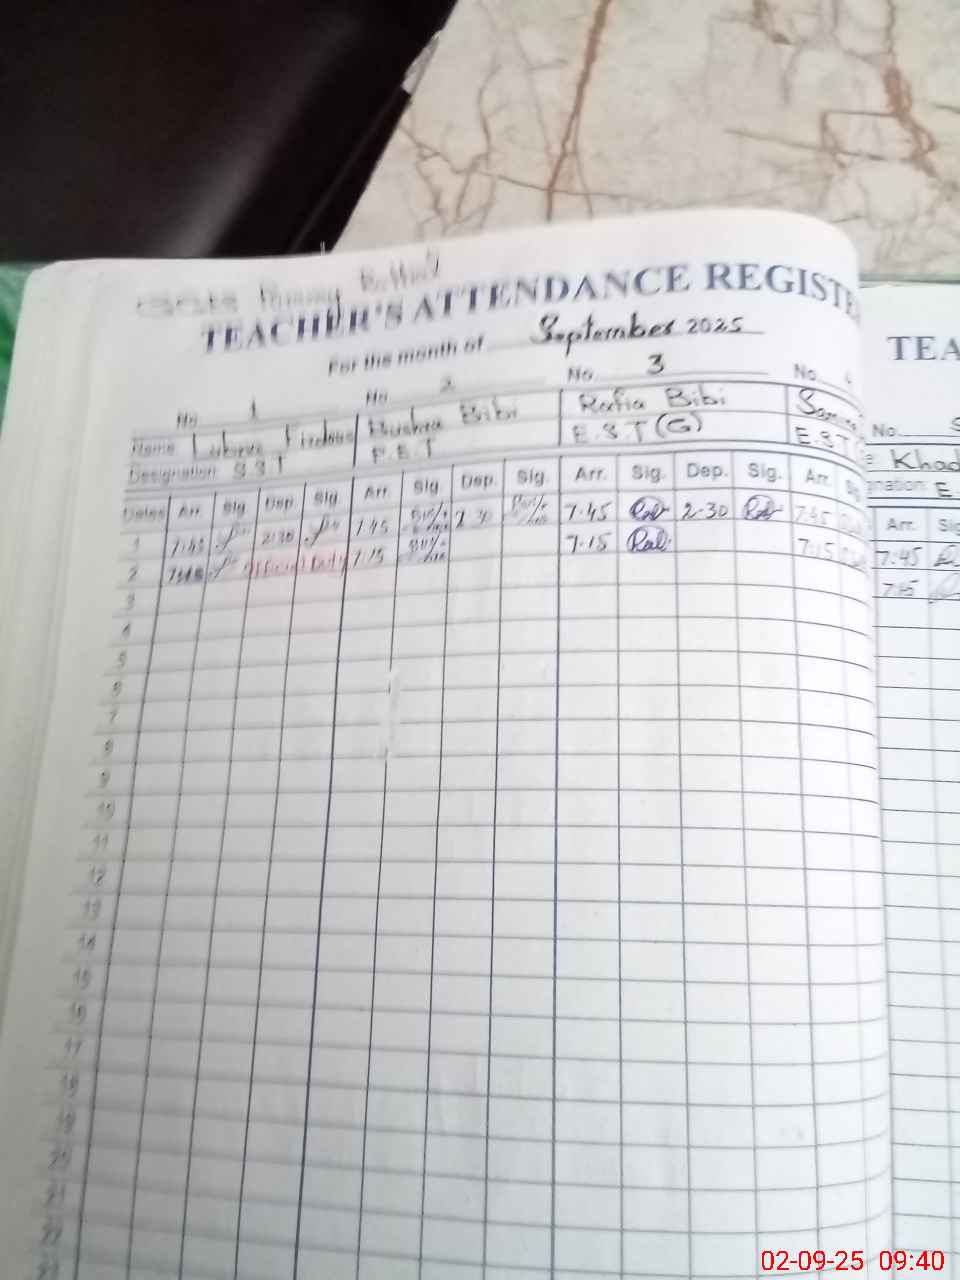 TEACHER'S ATTENDANCE REGISTE
For the month of September 2025
No. 1 No. 2 No. 3 No.
Name Lubna Firdous Bushra Bibi Rafia Bibi
Designation S.S.T E.S.T (G) E.S.T
Dates Arr. Sig. Dep. Sig. Arr. Sig. Dep. Sig. Arr. Sig. Dep. Sig. Arr.
1 7:45 2:30 7:45 2:30 7.45 2-30 7:45
2 Official Duty 7:15 7.15 7:15
3
4
5
6
7
8
9
10
11
12
13
14
15
16
17
18
19
20
21
22
TEA
No. S
Khad
nation: E.
Arr. Sig
7:45
7:15
02-09-25 09:40